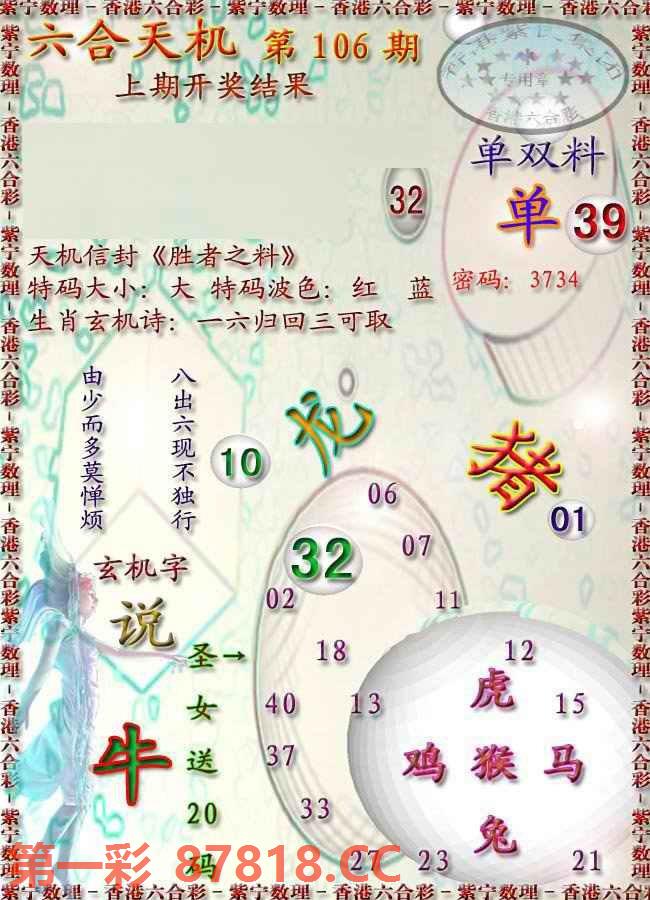 紫宁数理－香港六合彩－紫宁数理－香港六合彩－紫宁数理－香港六合彩
六合天机 第 106 期
上期开奖结果
专用章
香港六合彩
单双料
32
单 39
天机信封《胜者之料》
特码大小：大 特码波色：红 蓝
密码：3734
生肖玄机诗：一六归回三可取
八出六现不独行
由少而多莫惮烦
10
龙
猪
01
06
32
07
玄机字
说
02
11
圣→
女
送
20
码
牛
18
12
虎
40
13
15
37
鸡 猴 马
33
兔
27
23
21
第一彩 87818.CC
紫宁数理－香港六合彩－紫宁数理－香港六合彩－紫宁数理